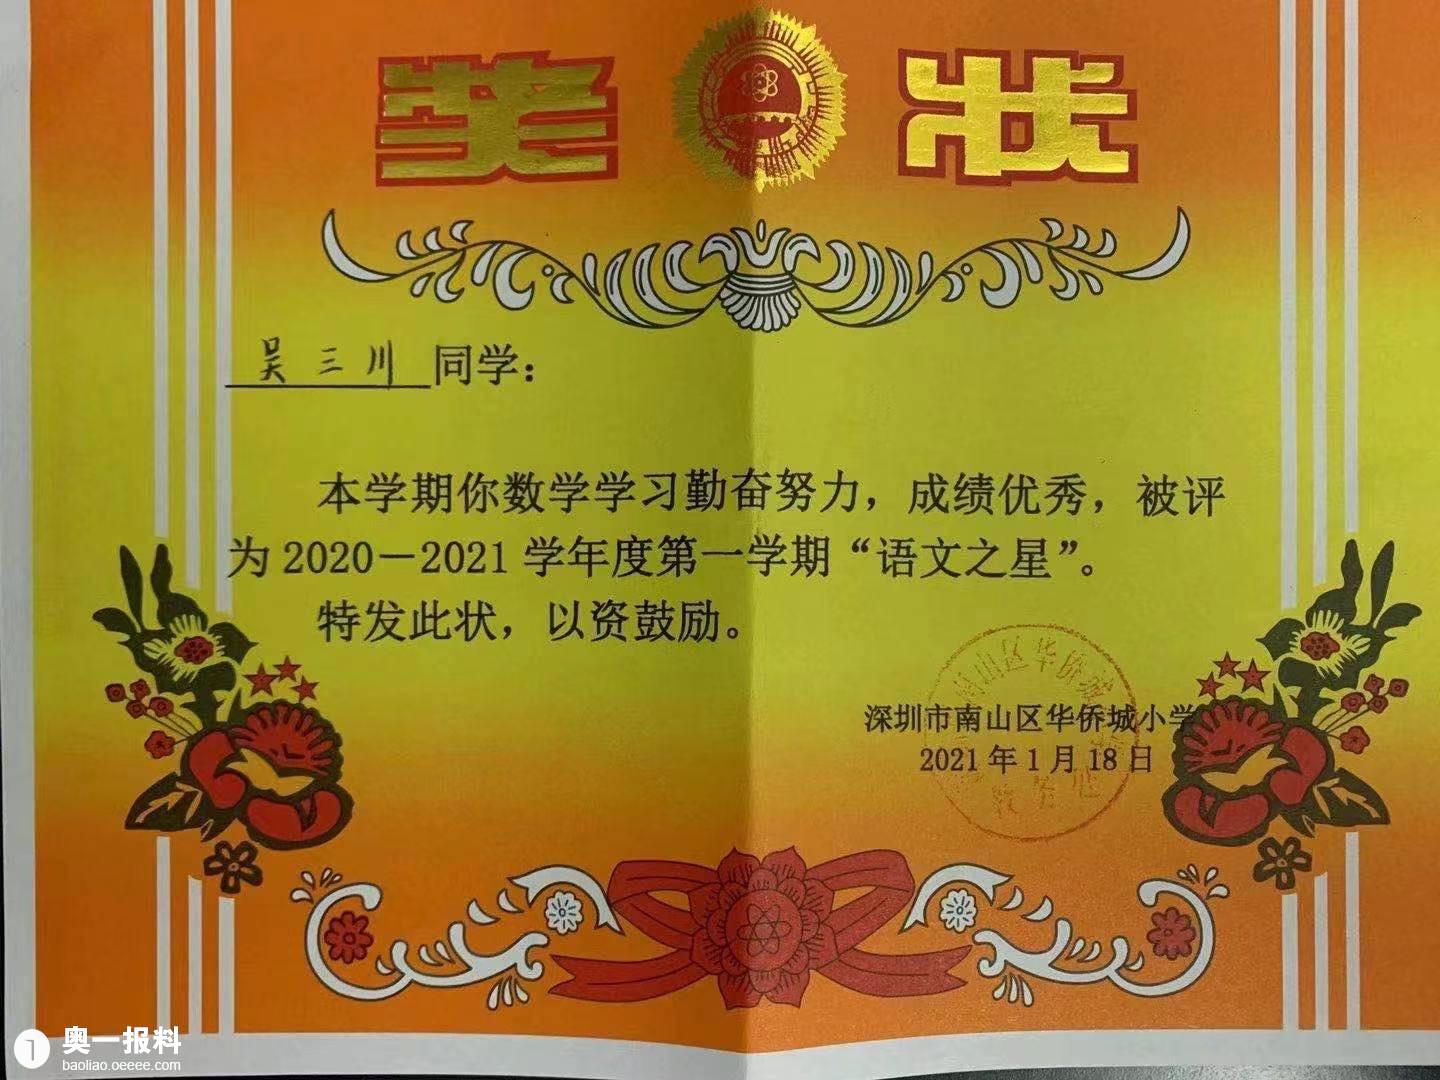 奖状
吴三川同学：
本学期你数学学习勤奋努力，成绩优秀，被评
为2020－2021学年度第一学期“语文之星”。
特发此状，以资鼓励。
南山区华侨城
深圳市南山区华侨城小学
2021年1月18日
1 奥一报料
baoliao.oeeee.com